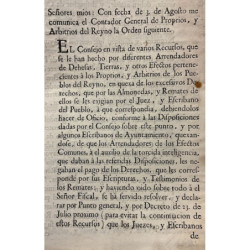 Señores mios: Con fecha de 3. de Agosto me
comunica el Contador General de Propios, y
Arbitrios del Reyno la Orden siguiente.
EL Consejo en vista de varios Recursos, que
se le han hecho por diferentes Arrendadores
de Dehesas, Tierras, y otros Efectos pertene-
cientes à los Propios, y Arbitrios de los Pue-
blos del Reyno, en quexa de los excesivos Dere-
chos, que por las Almonedas, y Remates de
ellos se les exigian por el Juez, y Escribano
del Pueblo, à que correspondia, debiendolos
hacer de Oficio, conforme à las Disposiciones
dadas por el Consejo sobre este punto, y por
algunos Escribanos de Ayuntamiento, quexan-
dose, de que los Arrendadores de los Efectos
Comunes, à el auxilio de la torcida inteligencia,
que daban à las referidas Disposiciones, les ne-
gaban el pago de los Derechos, que les corres-
ponde por sus Escripturas, y Testimonios de
los Remates; y haviendo oido sobre todo à el
Señor Fiscal, se hà servido resolver, y decla-
rar por Punto general, y por Decreto de 15. de
Julio proximo (para evitar la continuacion de
estos Recursos) que los Juezes, y Escribanos
de